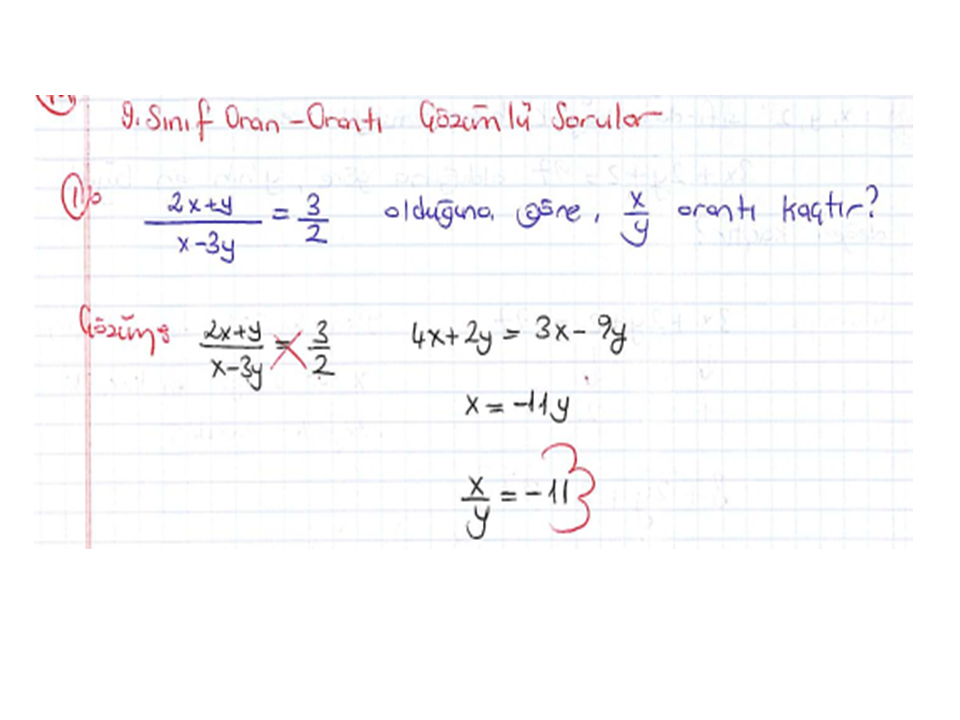 9. Sınıf Oran-Orantı Çözümlü Sorular
1) 2x+y / x-3y = 3/2 olduğuna göre, x/y orantı kaçtır?
Çözüm: 2x+y / x-3y = 3/2 4x+2y = 3x-9y
x = -11y
x/y = -11